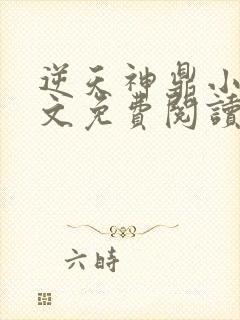 逆天神鼎小
文免費閱讀
六時